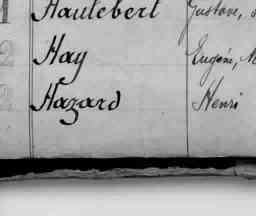 Hautebert Gustave,
Hay Eugène,
Hazard Henri